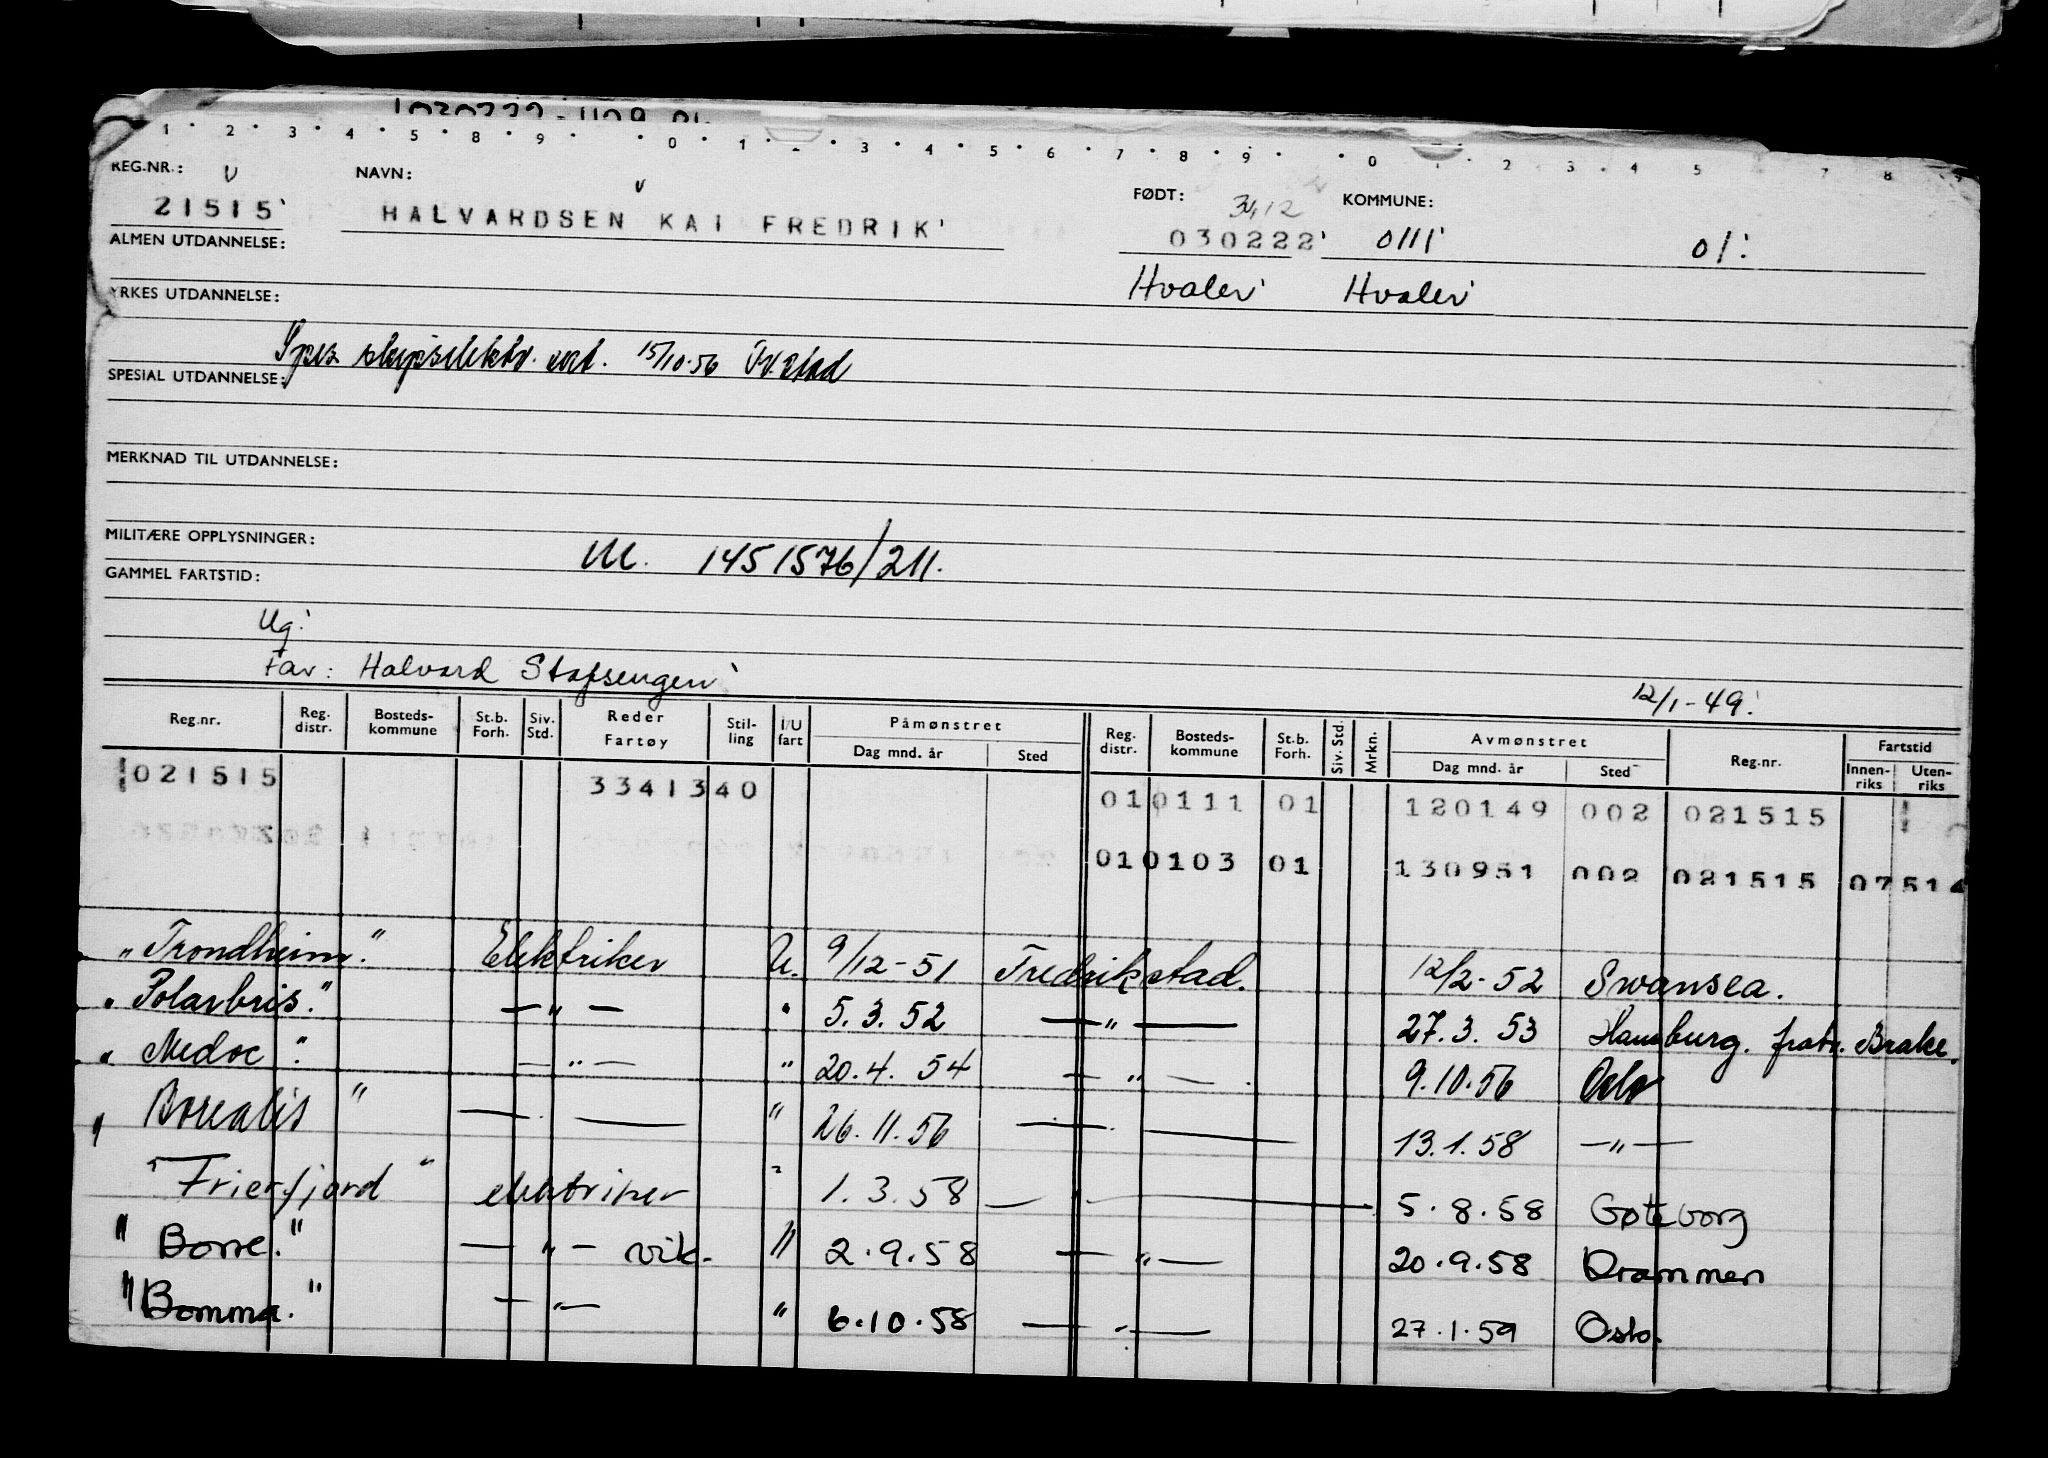 1 2 3 4 5 8 9 0 1 2 3 4 5 6 7 8 9 0 1 2 3 4 5 7 8
REG.NR.: NAVN: FØDT: 3412 KOMMUNE:
21515 HALVARDSEN KAI FREDRIK 030222 0111 01
ALMEN UTDANNELSE: Hvaler Hvaler
YRKES UTDANNELSE:
skipselektr. 15/10.56
SPESIAL UTDANNELSE:
MERKNAD TIL UTDANNELSE:
MILITÆRE OPPLYSNINGER: M. 1451576/211.
GAMMEL FARTSTID:
Ug.
Far: Halvard Stafsengen 12/1-49.
Reg.nr. Reg. distr. Bosteds-kommune St.b. Forh. Siv. Std. Reder Fartøy Stil-ling I/U fart Påmønstret Dag mnd. år Sted Reg. distr. Bosteds-kommune St.b. Forh. Siv. Std. Mrkn. Avmønstret Dag mnd. år Sted Reg.nr. Fartstid Innen-riks Uten-riks
021515 3341340 010111 01 120149 002 021515
010103 01 130951 002 021515 07514
"Trondheim." Elektriker U. 9/12-51 Fredrikstad. 12/2-52 Swansea.
"Polarbris." — " — " 5.3.52 — " — 27.3.53 Hamburg. fratr. Brake.
"Medoc" — " — " 20.4.54 — " — 9.10.56 Oslo
"Borealis" — — " 26.11.56 — — 13.1.58 — " —
"Frierfjord" elektriker " 1.3.58 — — 5.8.58 Gøteborg
"Borre." — " — vik. " 2.9.58 — " — 20.9.58 Drammen
"Bomma." — " — " 6.10.58 — " — 27.1.59 Oslo.